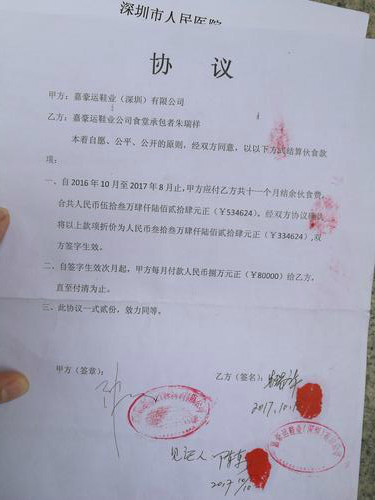 深圳市人民医院
协 议
甲方：嘉豪运鞋业（深圳）有限公司
乙方：嘉豪运鞋业公司食堂承包者朱瑞祥
本着自愿、公平、公开的原则，经双方同意，以以下方式结算伙食款
项：
一、自2016年10月至2017年8月止，甲方应付乙方共十一个月结余伙食费，
合共人民币伍拾叁万肆仟陆佰贰拾肆元正（￥534624）。经双方协议
将以上款项折价为人民币叁拾叁万肆仟陆佰贰拾肆元正（￥334624）,双
方签字生效。
二、自签字生效次月起，甲方每月付款人民币捌万元正（￥80000）给乙方，
直至付清为止。
三、此协议一式贰份，效力同等。
甲方（签章）： 乙方（签名）：
2017.10.
嘉豪运鞋业（深圳）有限公司
见证人
2017 10/10